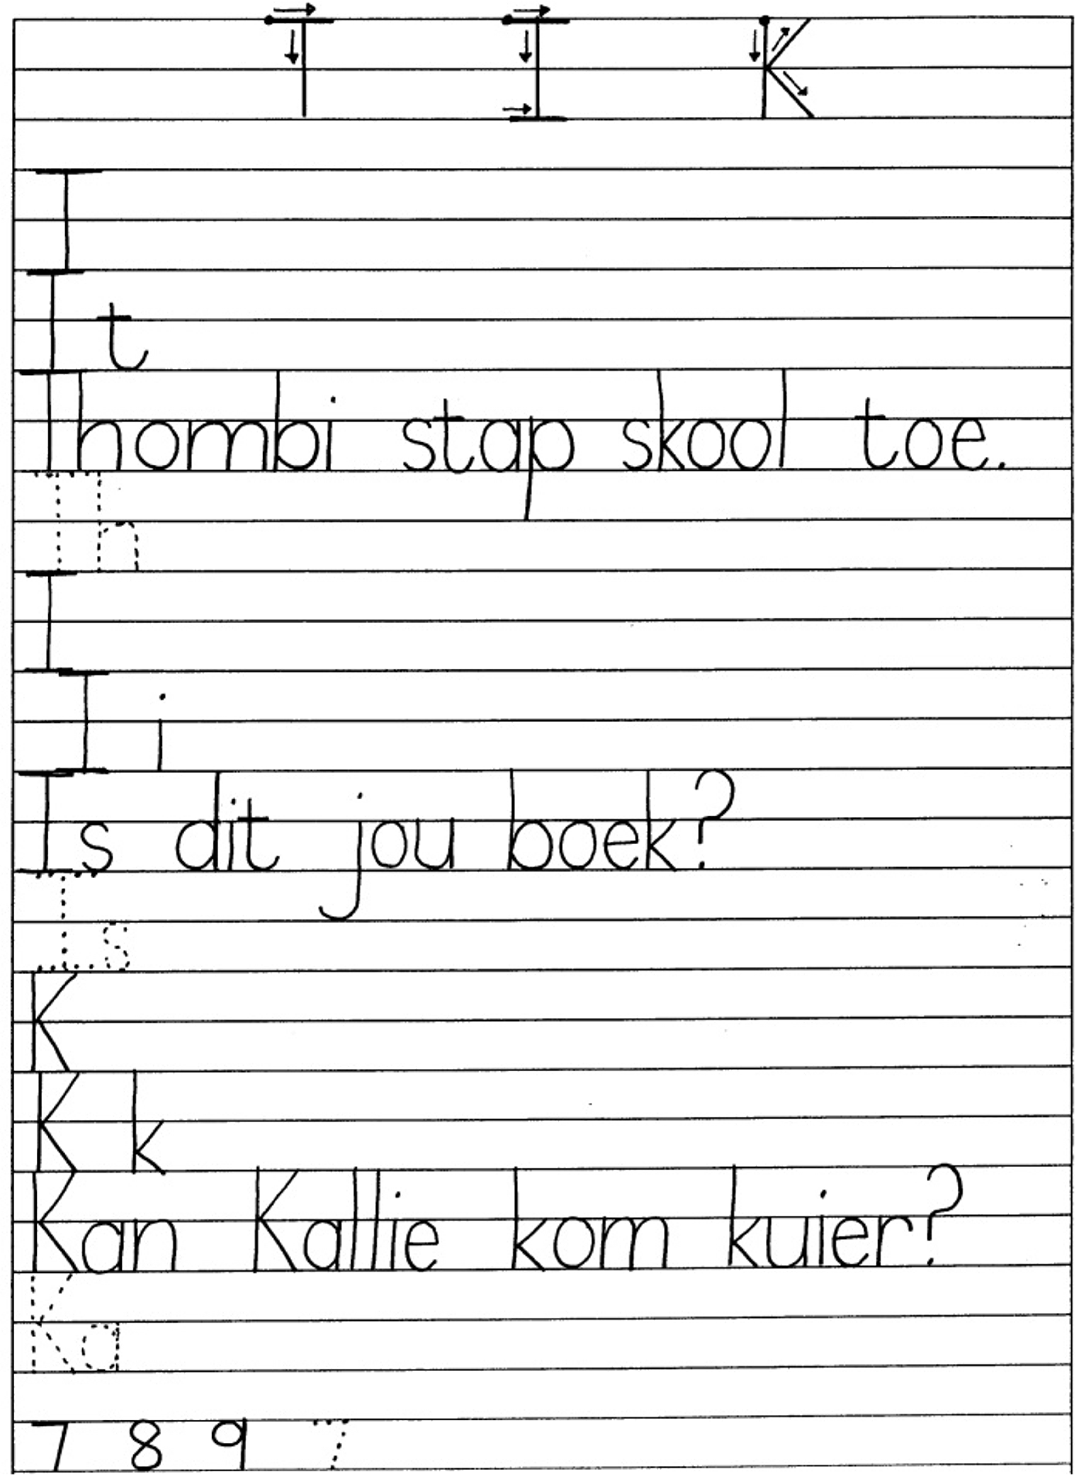 T I K
T
T t
Thombi stap skool toe.
Th
I
I i
Is dit jou boek?
Is
K
K k
Kan Kallie kom kuier?
Ka
7 8 9 7